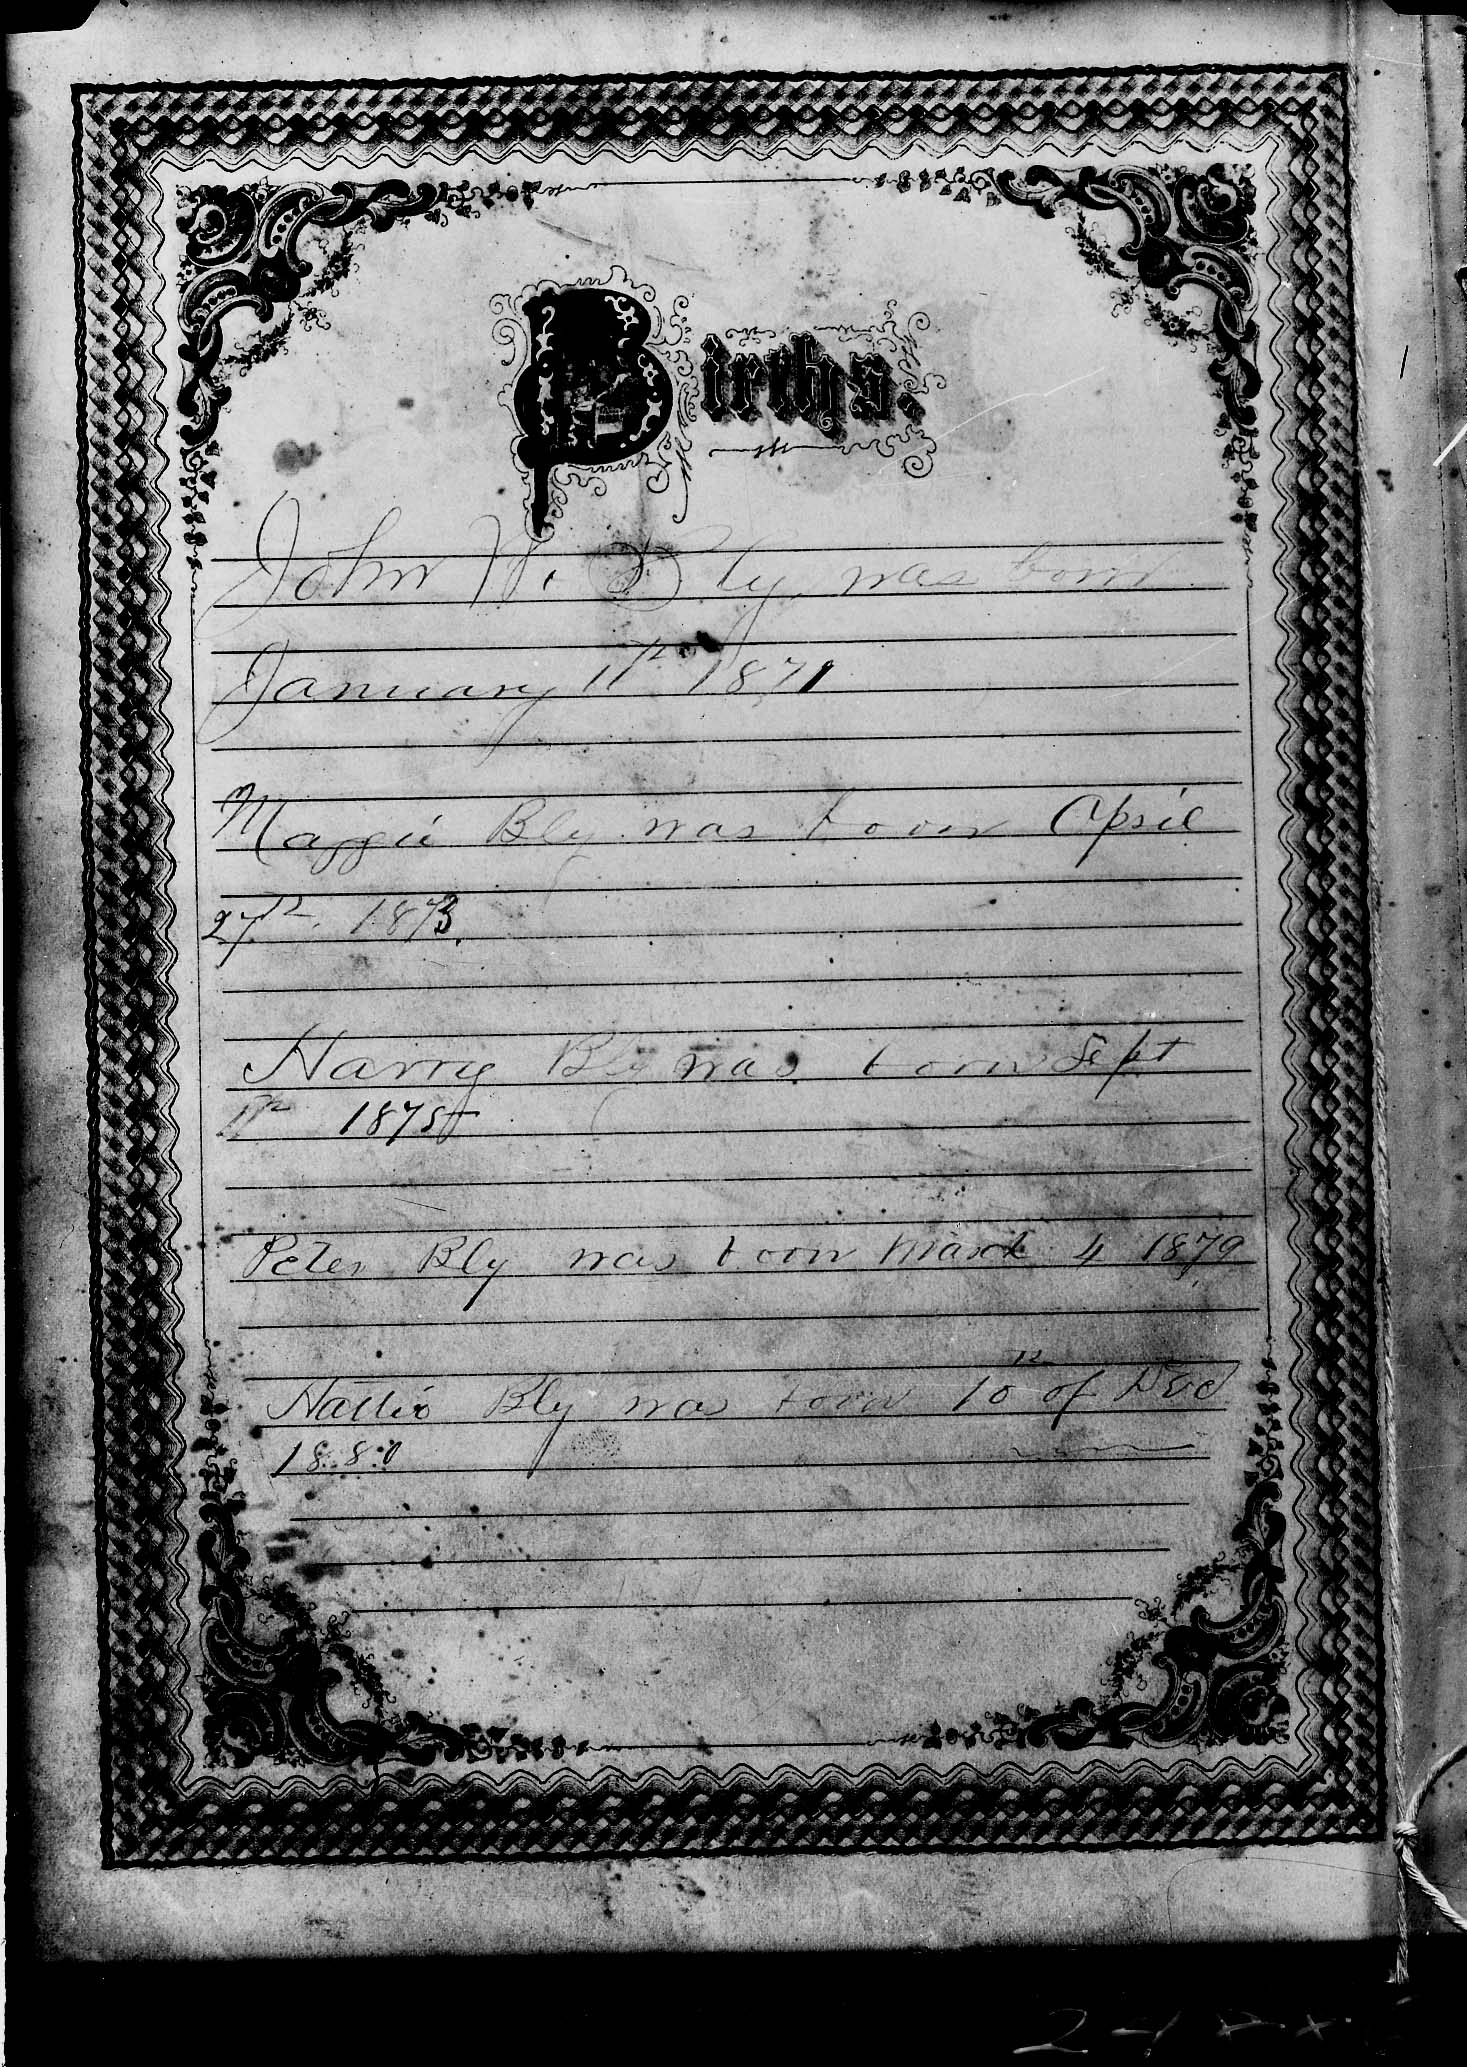 Births.
John W. Bly was born
January 11th 1871
Maggie Bly was born April
27th 1873.
Harry Bly was born Sept
11th 1875
Peter Bly was born March 4 1879
Hattie Bly was born 10th of Dec
1880